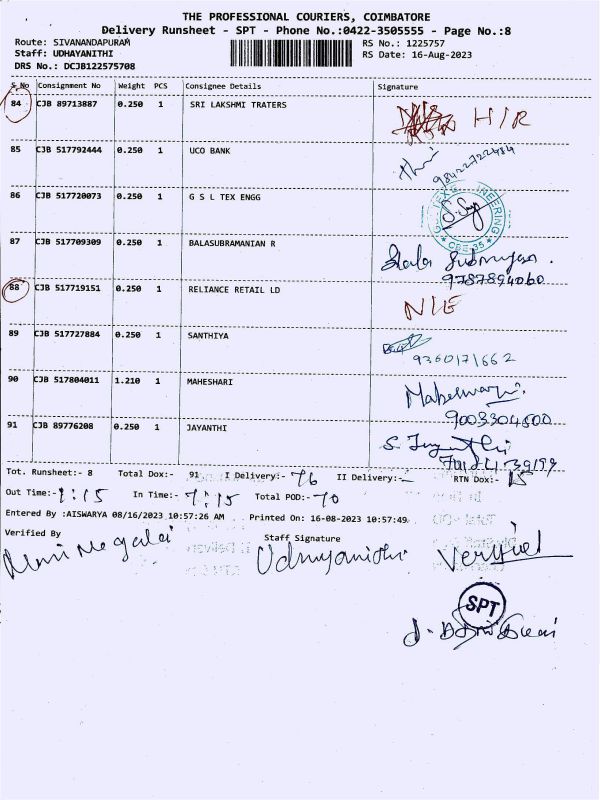 THE PROFESSIONAL COURIERS, COIMBATORE
Delivery Runsheet - SPT - Phone No.:0422-3505555 - Page No.:8
Route: SIVANANDAPURAM RS No.: 1225757
Staff: UDHAYANITHI RS Date: 16-Aug-2023
DRS No.: DCJB122575708
S No Consignment No Weight PCS Consignee Details Signature
84 CJB 89713887 0.250 1 SRI LAKSHMI TRATERS H/R
85 CJB 517792444 0.250 1 UCO BANK 9842722484
86 CJB 517720073 0.250 1 G S L TEX ENGG
87 CJB 517709309 0.250 1 BALASUBRAMANIAN R
9787894060
88 CJB 517719151 0.250 1 RELIANCE RETAIL LD N/E
89 CJB 517727884 0.250 1 SANTHIYA 9360171662
90 CJB 517804011 1.210 1 MAHESHARI Maheswari
9003304500
91 CJB 89776208 0.250 1 JAYANTHI
Tot. Runsheet:- 8 Total Dox:- 91 I Delivery:- 76 II Delivery:- RTN Dox:- 15
Out Time:- 1:15 In Time:- 7:15 Total POD:- 70
Entered By :AISWARYA 08/16/2023 10:57:26 AM Printed On: 16-08-2023 10:57:49
Verified By Staff Signature
Udhayanithi Veryfied
SPT